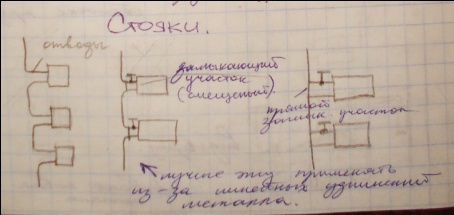 Стояки.
отводы
замыкающий
участок
(смещеный).
прямой
замык. участок
лучше эту применять
из-за линейных удлинений
металла.